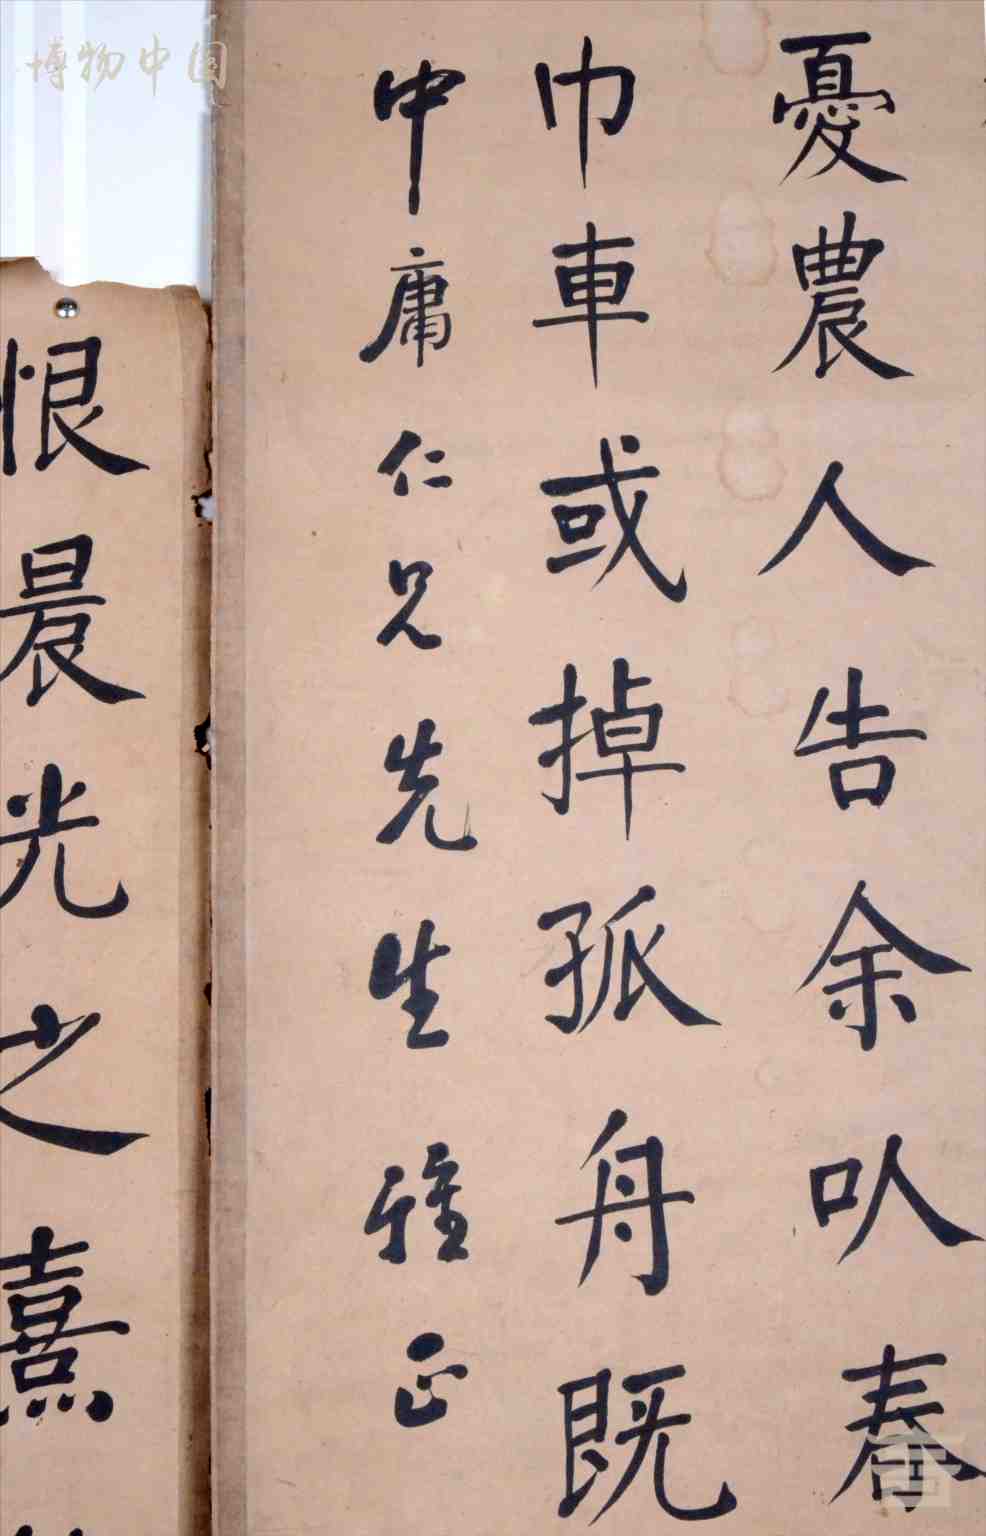 憂農人告余㕥春
巾車或掉孤舟既
中庸仁兄先生雅正
恨晨光之熹
博物中国